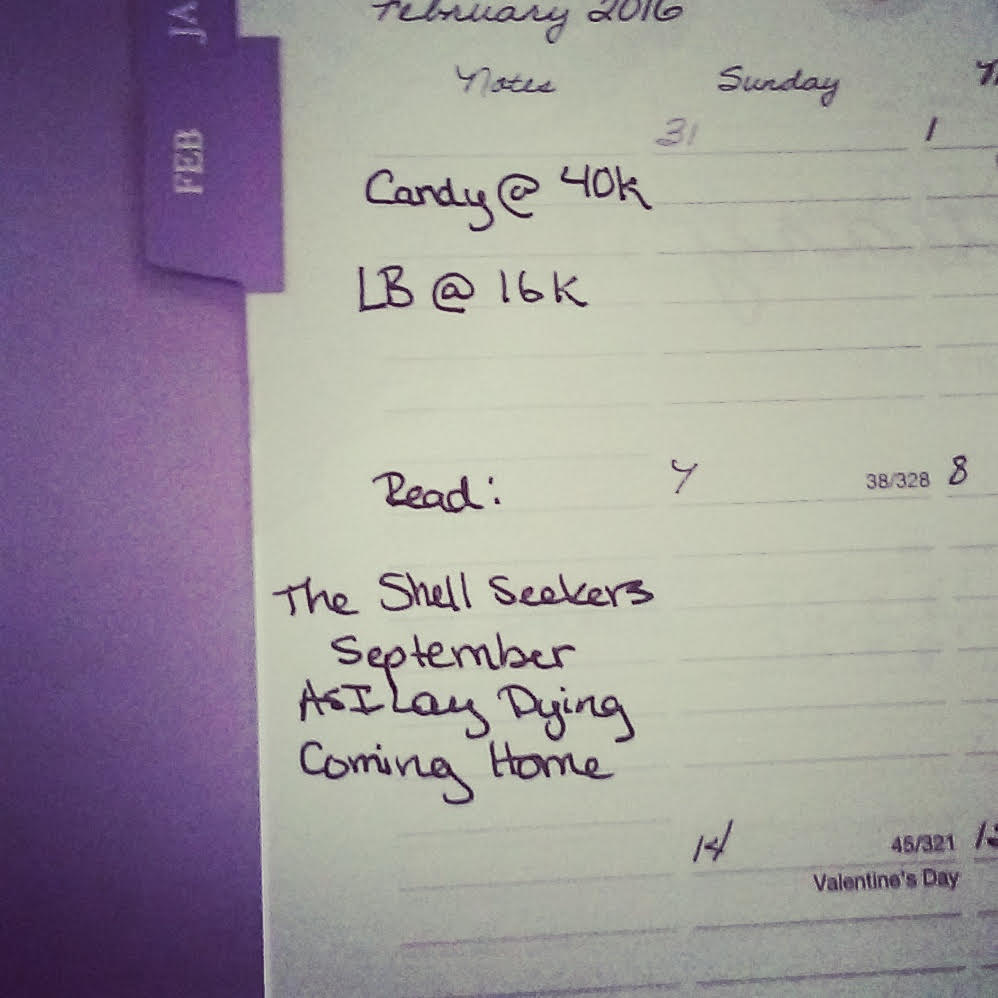 February 2016
JA
FEB
Notes Sunday
31 1
Candy @ 40k
LB @ 16k
Read: 7 38/328 8
The Shell Seekers
September
As I Lay Dying
Coming Home
14 45/321
Valentine's Day